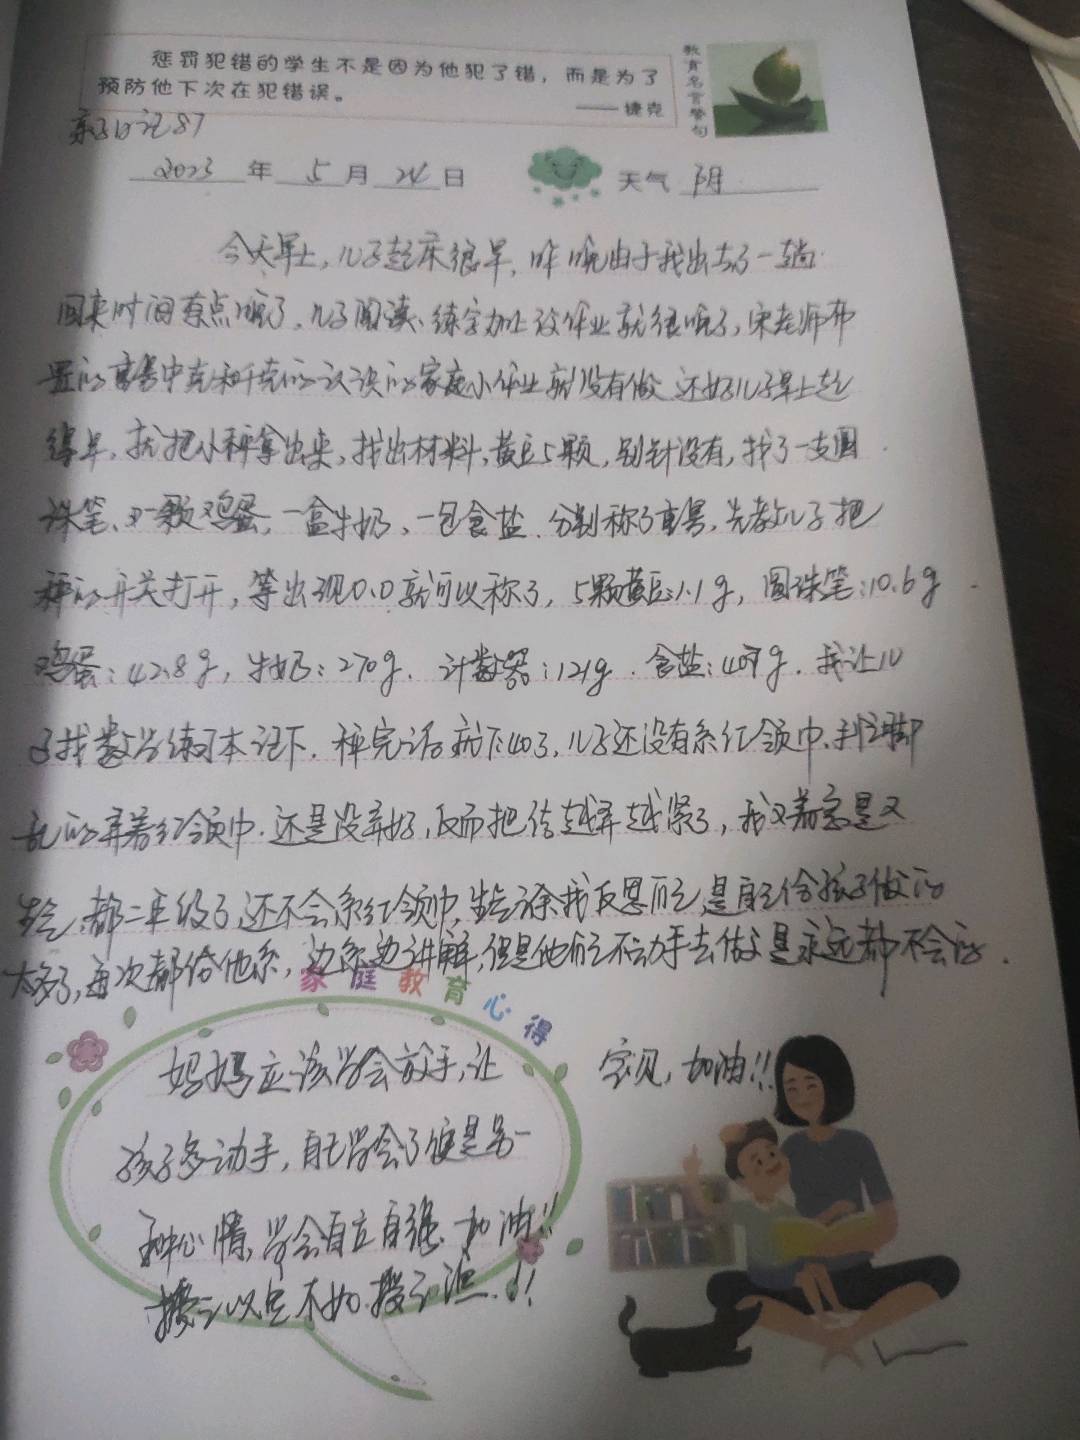 惩罚犯错的学生不是因为他犯了错，而是为了
预防他下次在犯错误。
——捷克
教育名言警句
亲子日记87
2023年5月24日 天气 阴
今天早上，儿子起床很早，昨晚由于我出去了一趟
回来时间有点晚了，儿子阅读、练字加上设作业就很晚了，宋老师布
置的高等中克和千克的认识的家庭小作业就没有做，还好儿子早上起
得早，就把小秤拿出来，找出材料，黄豆5颗，别针没有，找了一支圆
珠笔、又一颗鸡蛋，一盒牛奶，一包食盐，分别称了重量，先教儿子把
秤的开关打开，等出现0.0就可以称了，5颗黄豆：1.1g，圆珠笔：10.6g
鸡蛋：42.8g，牛奶：270g，计数器：121g，食盐：409g，我让儿
子找数学练习本记下，秤完后就7:40了，儿子还没有系红领巾，手忙脚
乱的弄着红领巾，还是没弄好，反而把结越弄越紧了，我又着急是又
生气，都二年级了，还不会系红领巾，生气之余我反思自己，是自己给孩子做的
太多了，每次都给他系，边系边讲解，但是他自己不动手去做是永远都不会的．
家庭教育心得
妈妈应该学会放手，让
孩子多动手，自己学会了便是另一
种心情，学会自立自强，加油!!
授之以鱼不如授之渔．!!
宝贝，加油!!